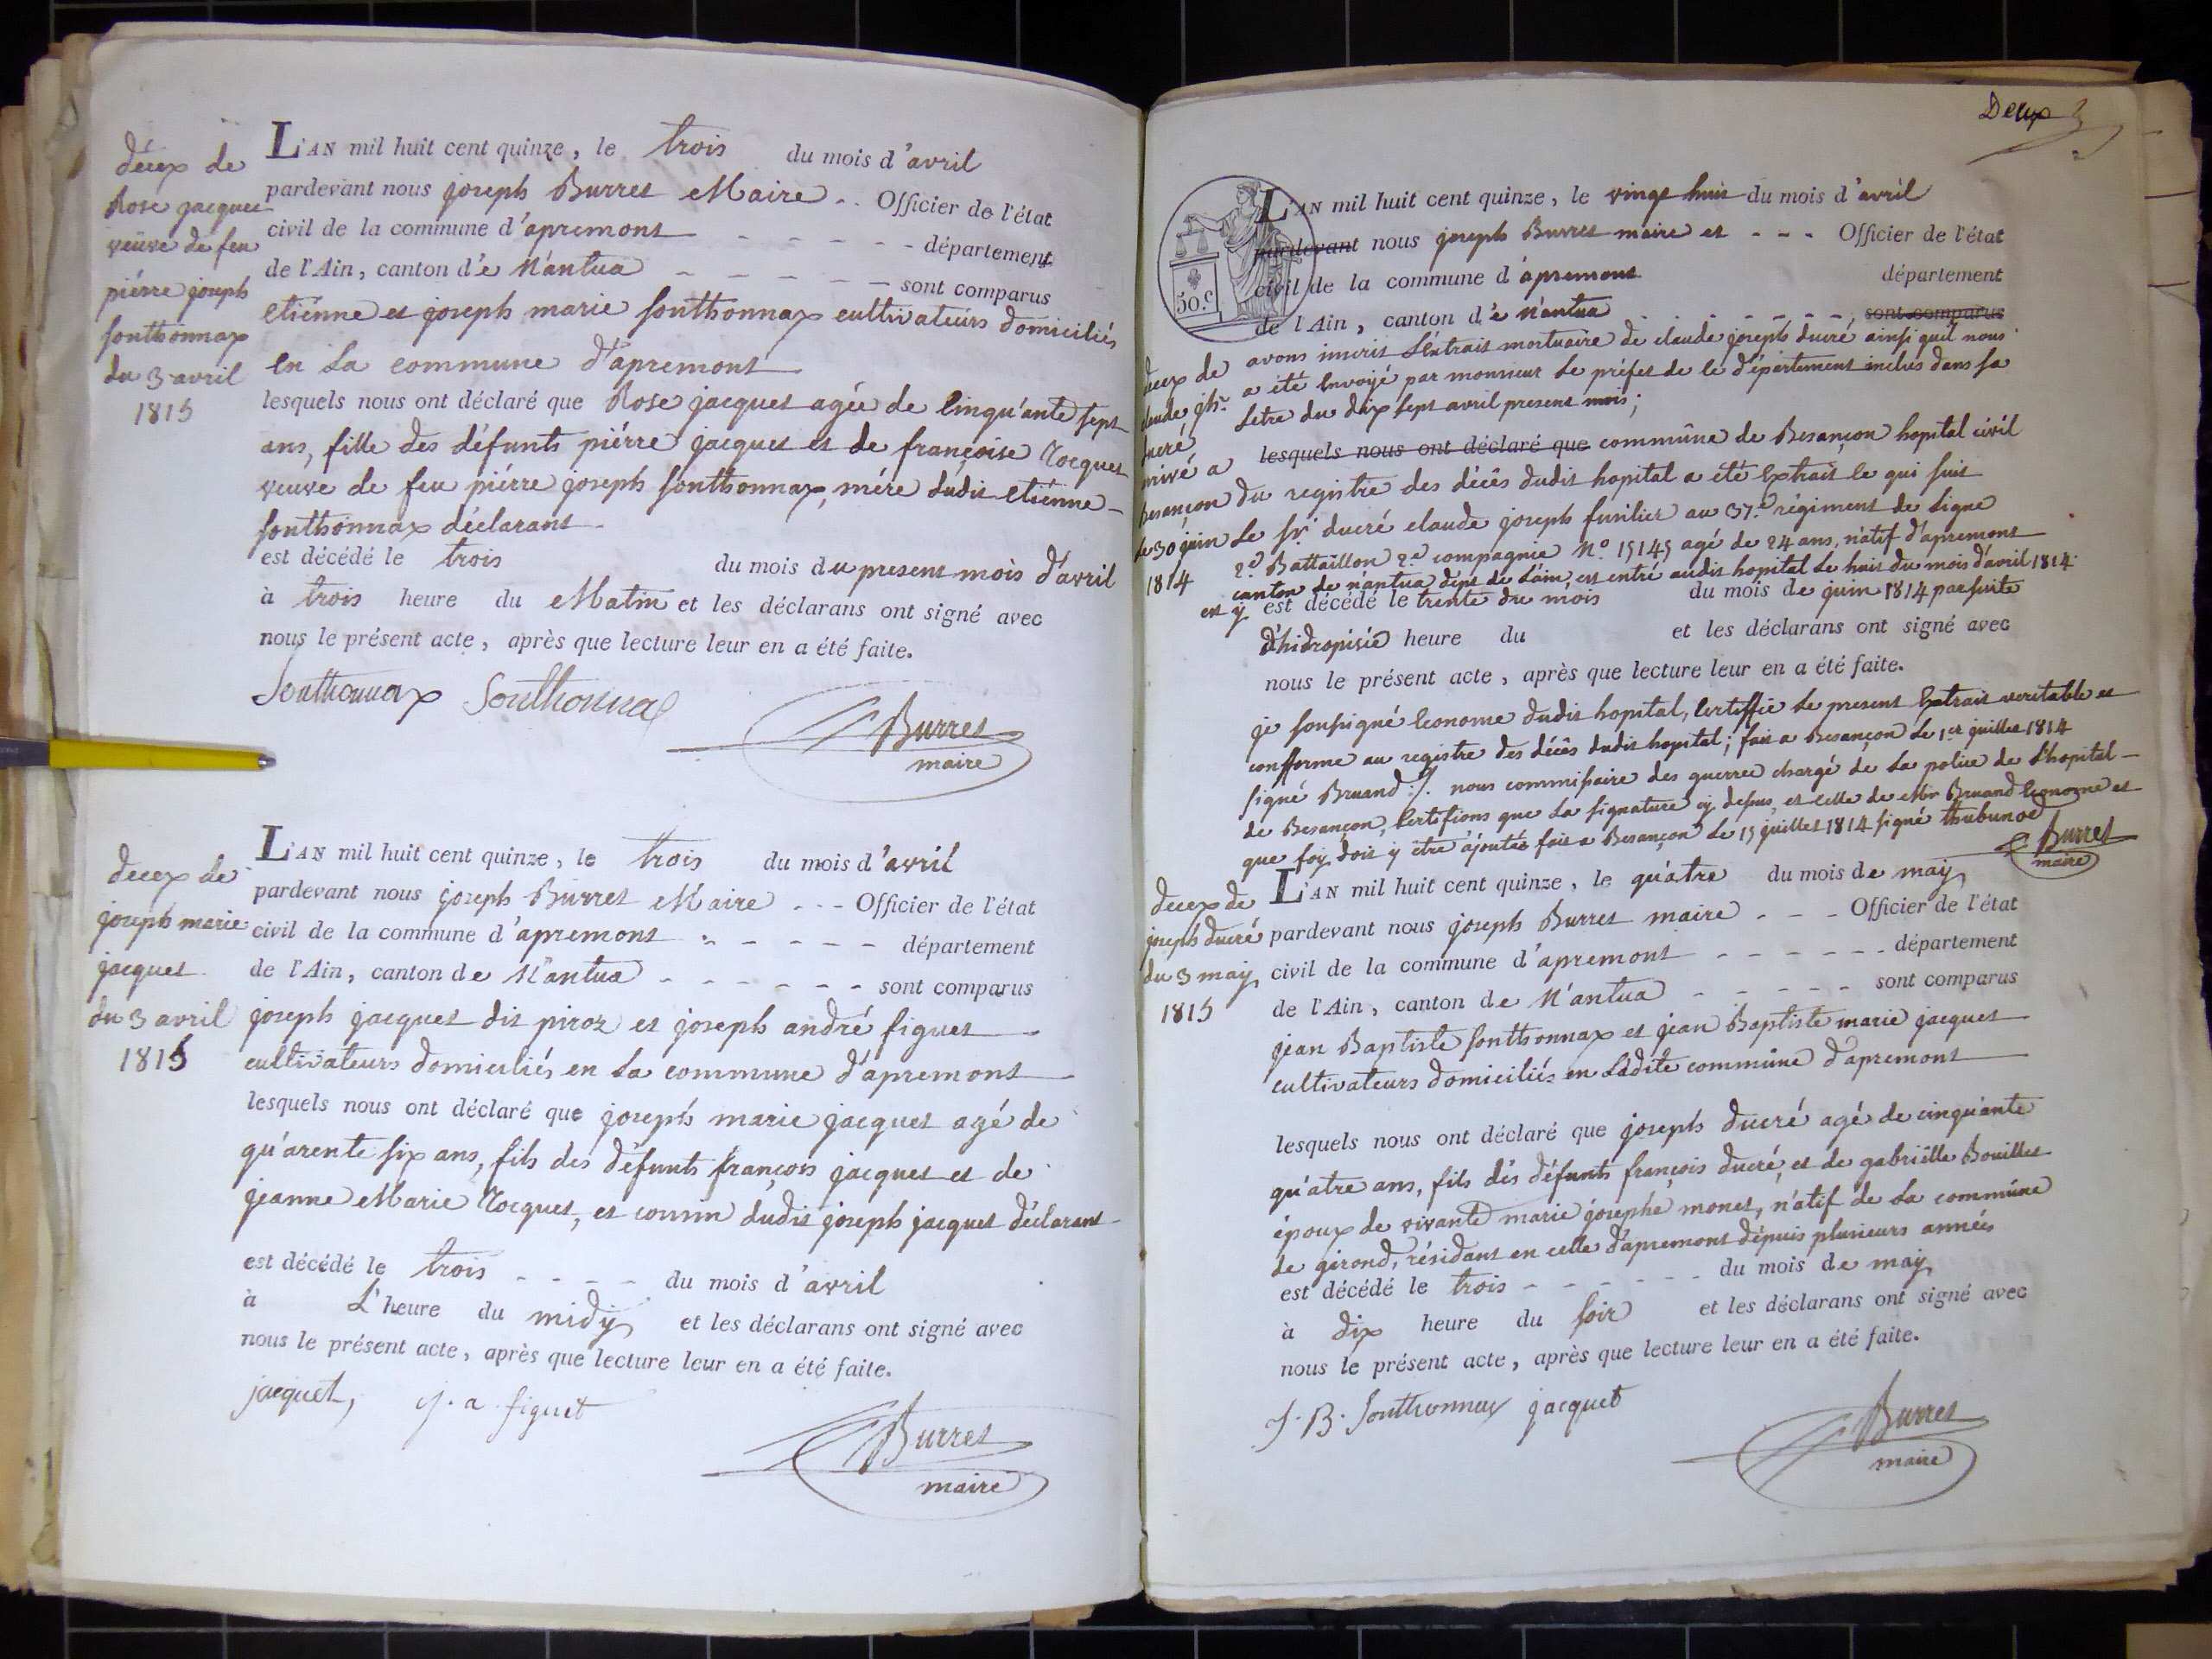 décex de
Rose jacquet
veüve de feu
piérre joseph
sonthonnax
du 3 avril
1815
L'AN mil huit cent quinze, le trois du mois d'avril
pardevant nous joseph Burret Maire - - Officier de l'état
civil de la commune d'apremont - - - - - - département
de l'Ain, canton d'e N'antua - - - - - - sont comparus
etiénne et joseph marie sonthonnax cultivateurs domiciliés
en la commune d'apremont
lesquels nous ont déclaré que Rose jacquet agée de cinqu'ante sept
ans, fille des défunts piérre jacquet et de françoise Tocquet
veuve de feu piérre joseph sonthonnax, mére dudit etiénne
sonthonnax déclarant
est décédé le trois du mois du present mois d'avril
à trois heure du Matin et les déclarans ont signé avec
nous le présent acte, après que lecture leur en a été faite.
Sonthonnax Sonthonnax
Burret
maire
decex de
joseph marie
jacquet
du 3 avril
1815
L'AN mil huit cent quinze, le trois du mois d'avril
pardevant nous joseph Burret Maire - - - Officier de l'état
civil de la commune d'apremont - - - - - - département
de l'Ain, canton de N'antua - - - - - - sont comparus
joseph jacquet dit piroz et joseph andré figuet
cultivateurs domiciliés en la commune d'apremont
lesquels nous ont déclaré que joseph marie jacquet agé de
qu'arente six ans, fils des défunts françois jacquet et de
jeanne Marie Tocquet, et cousin dudit joseph jacquet déclarant
est décédé le trois - - - - du mois d'avril
à L'heure du midy et les déclarans ont signé avec
nous le présent acte, après que lecture leur en a été faite.
jacquet, j. a. figuet
Burret
maire
Deux
50.c
decex de
claude jh.
ducré
arrivé a
Besançon
le 30 juin
1814
L'AN mil huit cent quinze, le vingt huit du mois d'avril
pardevant nous joseph Burret maire et - - - Officier de l'état
civil de la commune d'apremont département
de l'Ain, canton d'e N'antua - - - - - - , sont comparus
avons inscrit L'extrait mortuaire de claude joseph ducré ainsi quil nous
a été envoyé par monsieur le préfet de ce département inclus dans sa
letre du dix sept avril present mois;
lesquels nous ont déclaré que commûne de Besançon hopital civil
du registre des décês dudit hopital a été extrait ce qui suit
Le sr. ducré claude joseph fusilier au 37.e régiment de ligne
2.e Battaillon 2.e compagnie N.o 15145 agé de 24 ans, natif d'apremont
canton de n'antua dépt de L'ain, est entré audit hopital le huit du mois d'avril 1814
et y est décédé le trente du mois du mois de juin 1814 par suite
d'hidropisie heure du et les déclarans ont signé avec
nous le présent acte, après que lecture leur en a été faite.
je soussigné econome dudit hopital, certiffie le present extrait veritable et
confforme au registre des décês dudit hopital; fait a Besançon le 1er juillet 1814
signé Bruand ./. nous commissaire des guerres chargé de la police de l'hopital
de Besançon, certifions que la signature cy dessus, et celle de Mr Bruand econome et
que foy doit y être ajoutée fait a Besançon le 15 juillet 1814 signé
Burret
maire
decex de
joseph ducré
du 3 may
1815
L'AN mil huit cent quinze, le qu'atre du mois de may
pardevant nous joseph Burret maire - - - Officier de l'état
civil de la commune d'apremont - - - - - - département
de l'Ain, canton de N'antua - - - - - sont comparus
jean Baptiste sonthonnax et jean Baptiste marie jacquet
cultivateurs domiciliés en Ladite commûne d'apremont
lesquels nous ont déclaré que joseph ducré agé de cinqu'ante
qu'atre ans, fils dés défunts françois ducré, et de gabriëlle Bouillet
époux de vivante marie josephe monet, n'atif de la commûne
de girond, résidant en celle d'apremont dépuis plusieurs années
est décédé le trois - - - - - - du mois de may
à dix heure du soir et les déclarans ont signé avec
nous le présent acte, après que lecture leur en a été faite.
J. B. Sonthonnax jacquet
Burret
maire